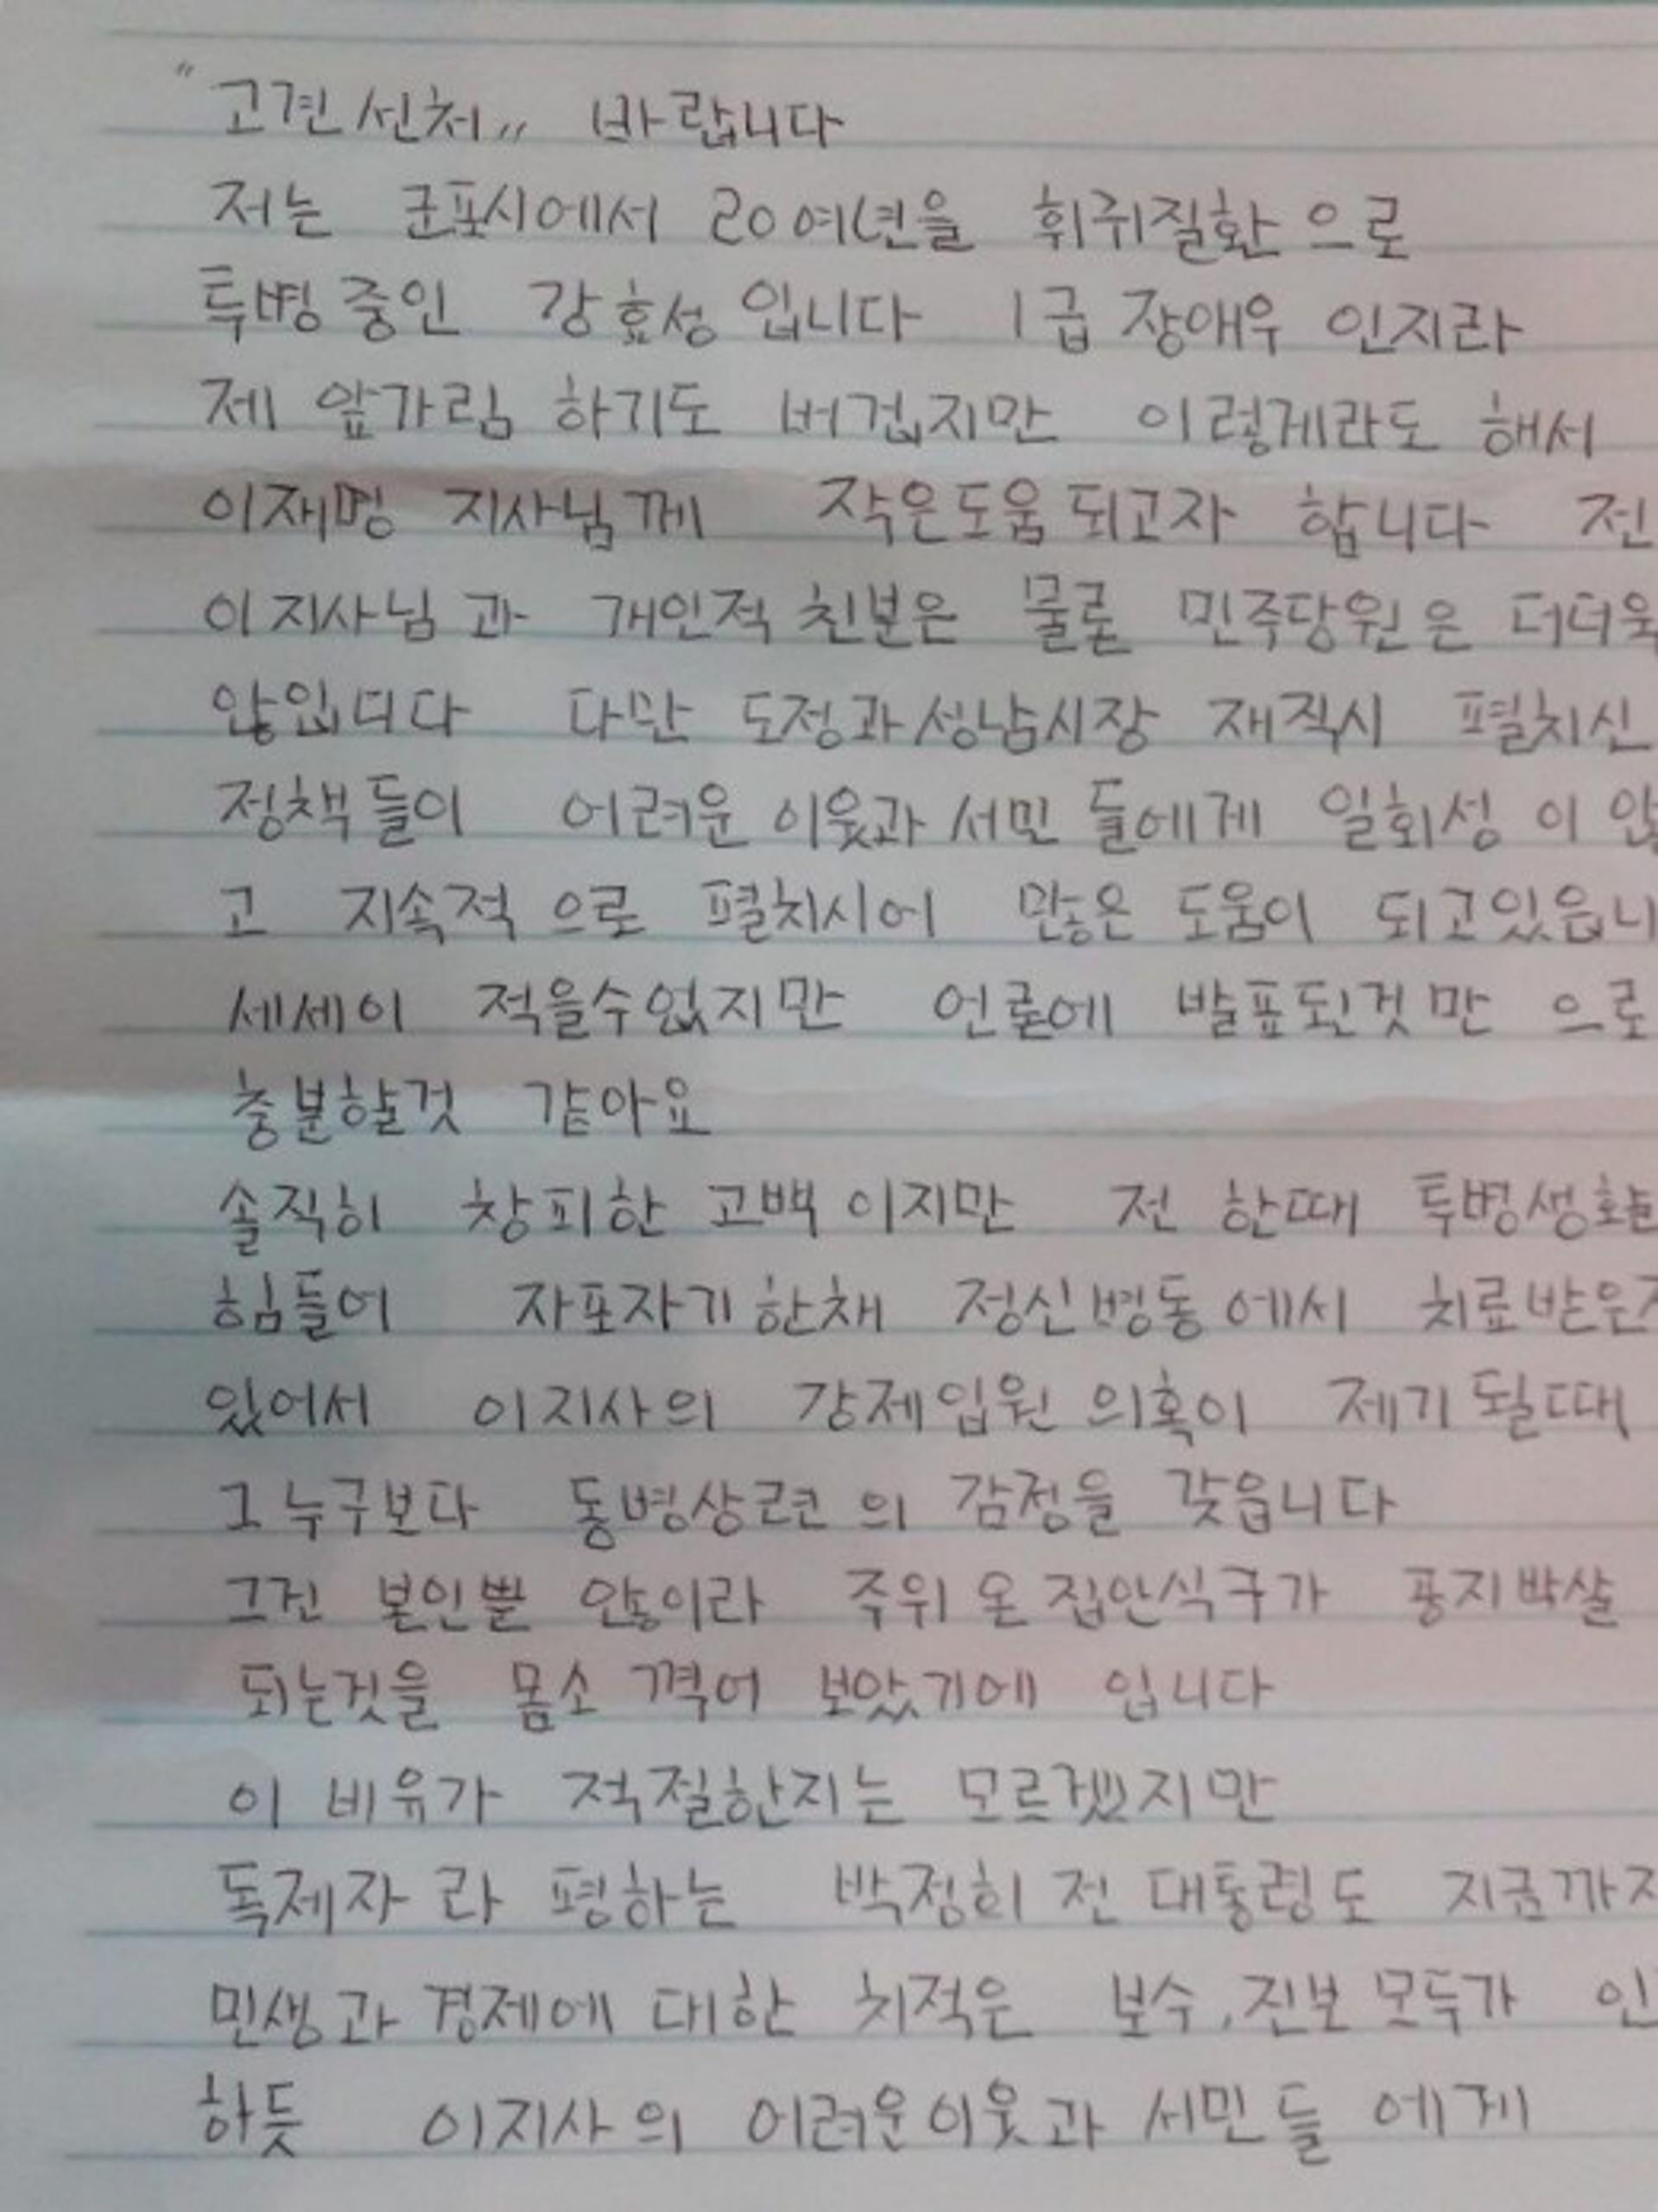 "고견선처" 바랍니다
저는 군포시에서 20여년을 휘귀질환으로
투병중인 강효성입니다 1급 장애우 인지라
제 앞가림 하기도 버겁지만 이렇게라도 해서
이재명 지사님께 작은도움 되고자 합니다 전
이지사님과 개인적 친분은 물론 민주당원은 더더욱
않입니다 다만 도정과성남시장 재직시 펼치신
정책들이 어려운 이웃과 서민들에게 일회성 이 않
고 지속적 으로 펼치시어 많은 도움이 되고있읍니
세세이 적을수없지만 언론에 발표된것만 으로
충분할것 같아요
솔직히 창피한 고백 이지만 전 한때 투병생활
힘들어 자포자기한채 정신병동에서 치료받은
있어서 이지사의 강제입원 의혹이 제기될때
그누구보다 동병상련의 감정을 갖읍니다
그건 본인뿐 않이라 주위 온집안식구가 풍지박살
되는것을 몸소 껵어 보았기에 입니다
이 비유가 적절한지는 모르겠지만
독제자라 평하는 박정희 전 대통령도 지금까지
민생과 경제에 대한 치적은 보수,진보모두가 인
하듯 이지사의 어려운이웃과 서민들 에게